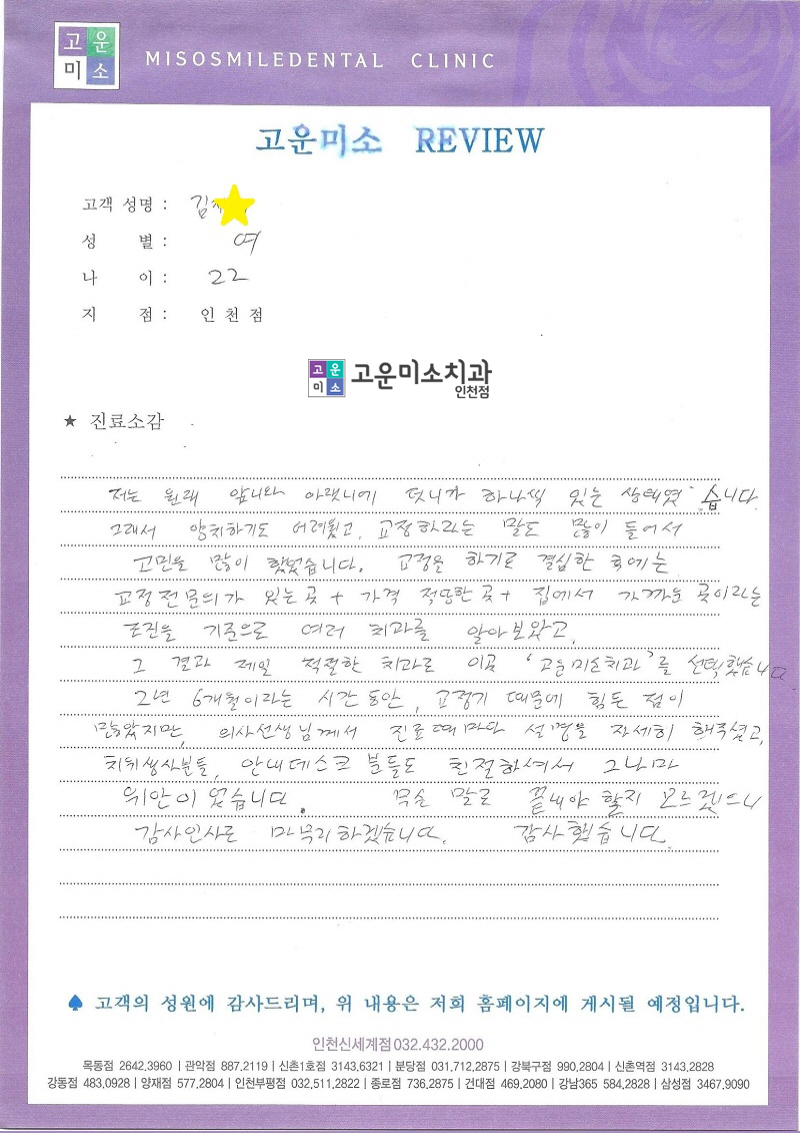 고운
미소
MISOSMILEDENTAL CLINIC
고운미소 REVIEW
고객 성명 : 김
성 별 : 여
나 이 : 22
지 점 : 인 천 점
고운
미소
고운미소치과
인천점
★ 진료소감
저는 원래 앞니와 아랫니에 덧니가 하나씩 있는 상태였습니다.
그래서 양치하기도 어려웠고, 교정하라는 말도 많이 들어서
고민을 많이 했었습니다. 교정을 하기로 결심한 후에는
교정전문의가 있는 곳 + 가격 적당한 곳 + 집에서 가까운 곳이라는
조건을 기준으로 여러 치과를 알아보았고,
그 결과 제일 적절한 치과로 이곳 '고운미소치과'를 선택했습니다
2년 6개월이라는 시간 동안, 교정기 때문에 힘든 점이
많았지만, 의사선생님께서 진료때마다 설명을 자세히 해주셨고,
치위생사분들, 안내데스크 분들도 친절하셔서 그나마
위안이 었습니다. 무슨 말로 끝내야 할지 모르겠으니
감사인사로 마무리하겠습니다. 감사했습니다.
♠ 고객의 성원에 감사드리며, 위 내용은 저희 홈페이지에 게시될 예정입니다.
인천신세계점 032.432.2000
목동점 2642.3960 | 관악점 887.2119 | 신촌1호점 3143.6321 | 분당점 031.712.2875 | 강북구점 990.2804 | 신촌역점 3143.2828
강동점 483.0928 | 양재점 577.2804 | 인천부평점 032.511.2822 | 종로점 736.2875 | 건대점 469.2080 | 강남365 584.2828 | 삼성점 3467.9090